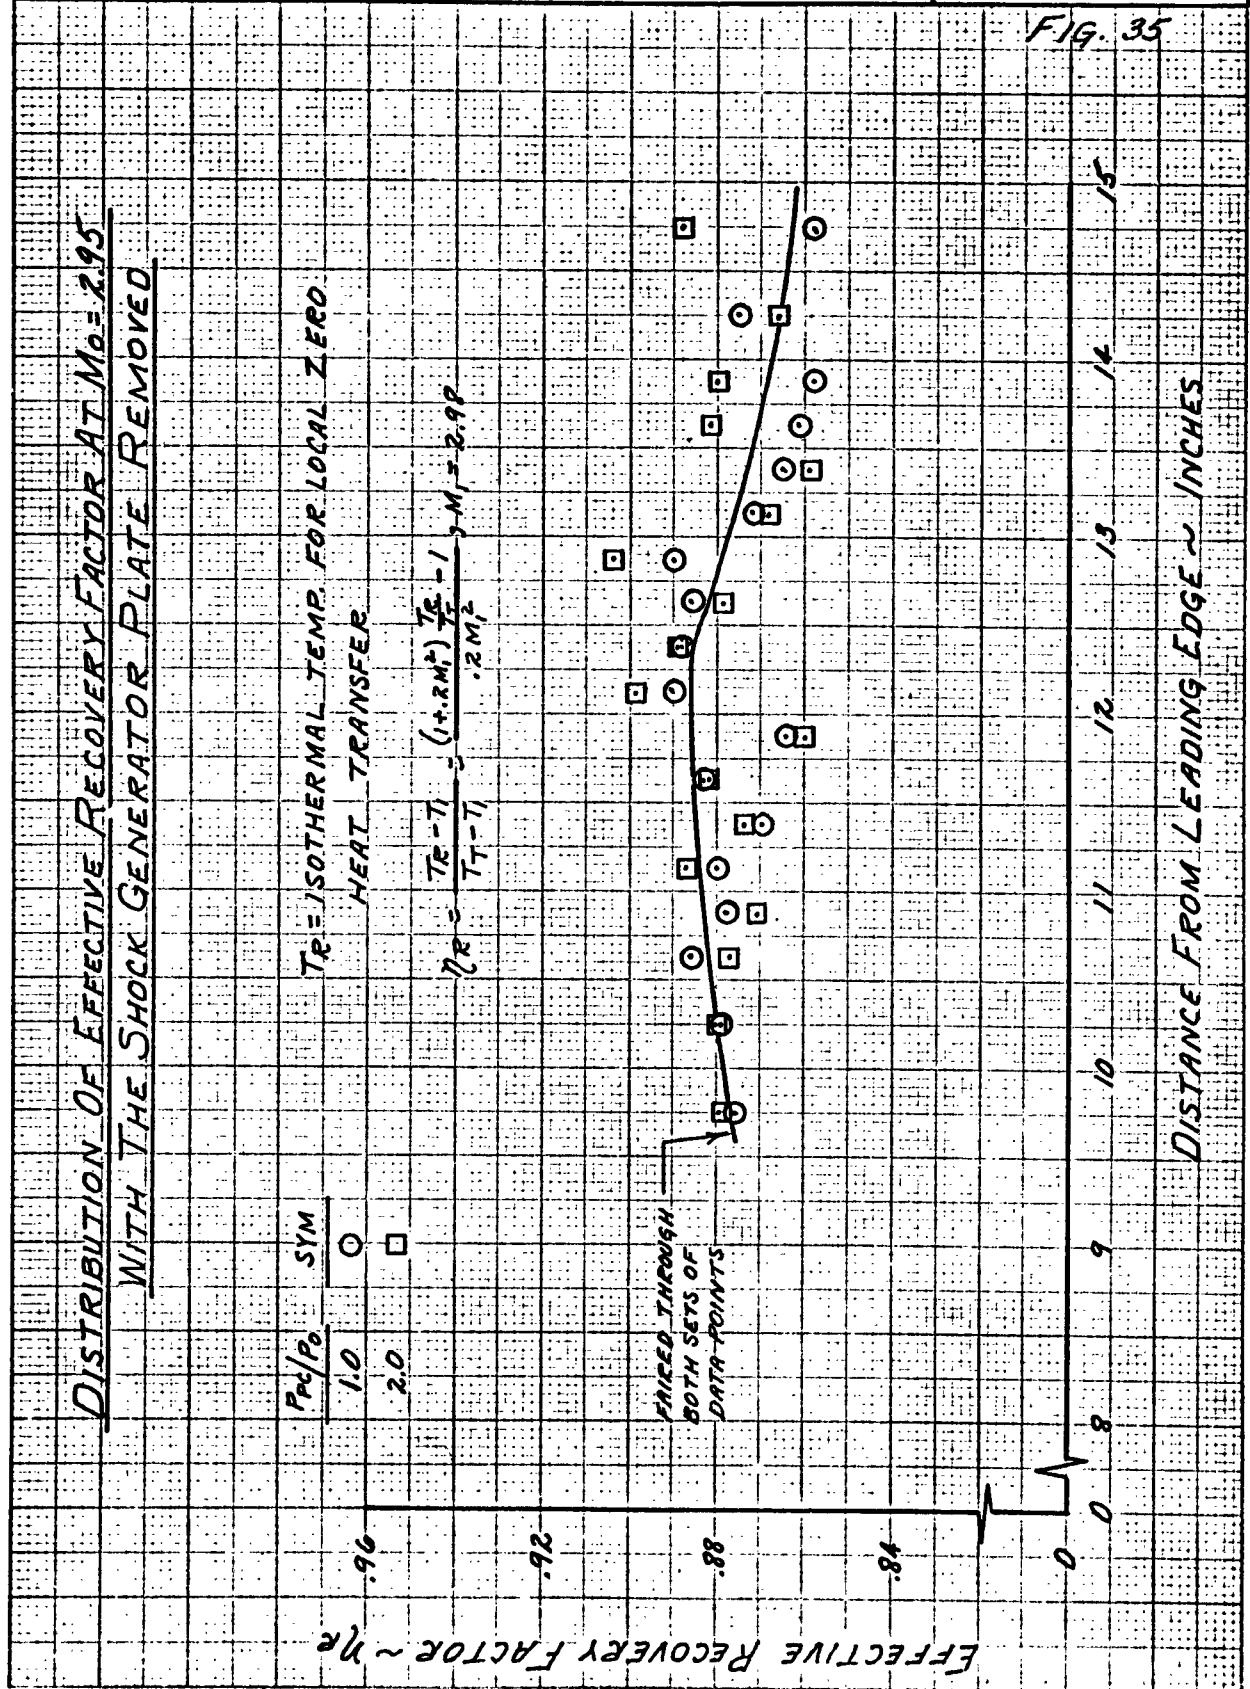 FIG. 35
DISTRIBUTION OF EFFECTIVE RECOVERY FACTOR AT M₀ = 2.95
WITH THE SHOCK GENERATOR PLATE REMOVED
P_PC/P₀ SYM
1.0
2.0
T_R = ISOTHERMAL TEMP. FOR LOCAL ZERO
HEAT TRANSFER
η_R = (T_R - T₁)/(T_T - T₁) = ((1+.2M₁²) T_R/T_T - 1)/(.2M₁²) , M₁ = 2.98
FAIRED THROUGH
BOTH SETS OF
DATA POINTS
EFFECTIVE RECOVERY FACTOR ~ η_R
.96
.92
.88
.84
0
0 8 9 10 11 12 13 14 15
DISTANCE FROM LEADING EDGE ~ INCHES